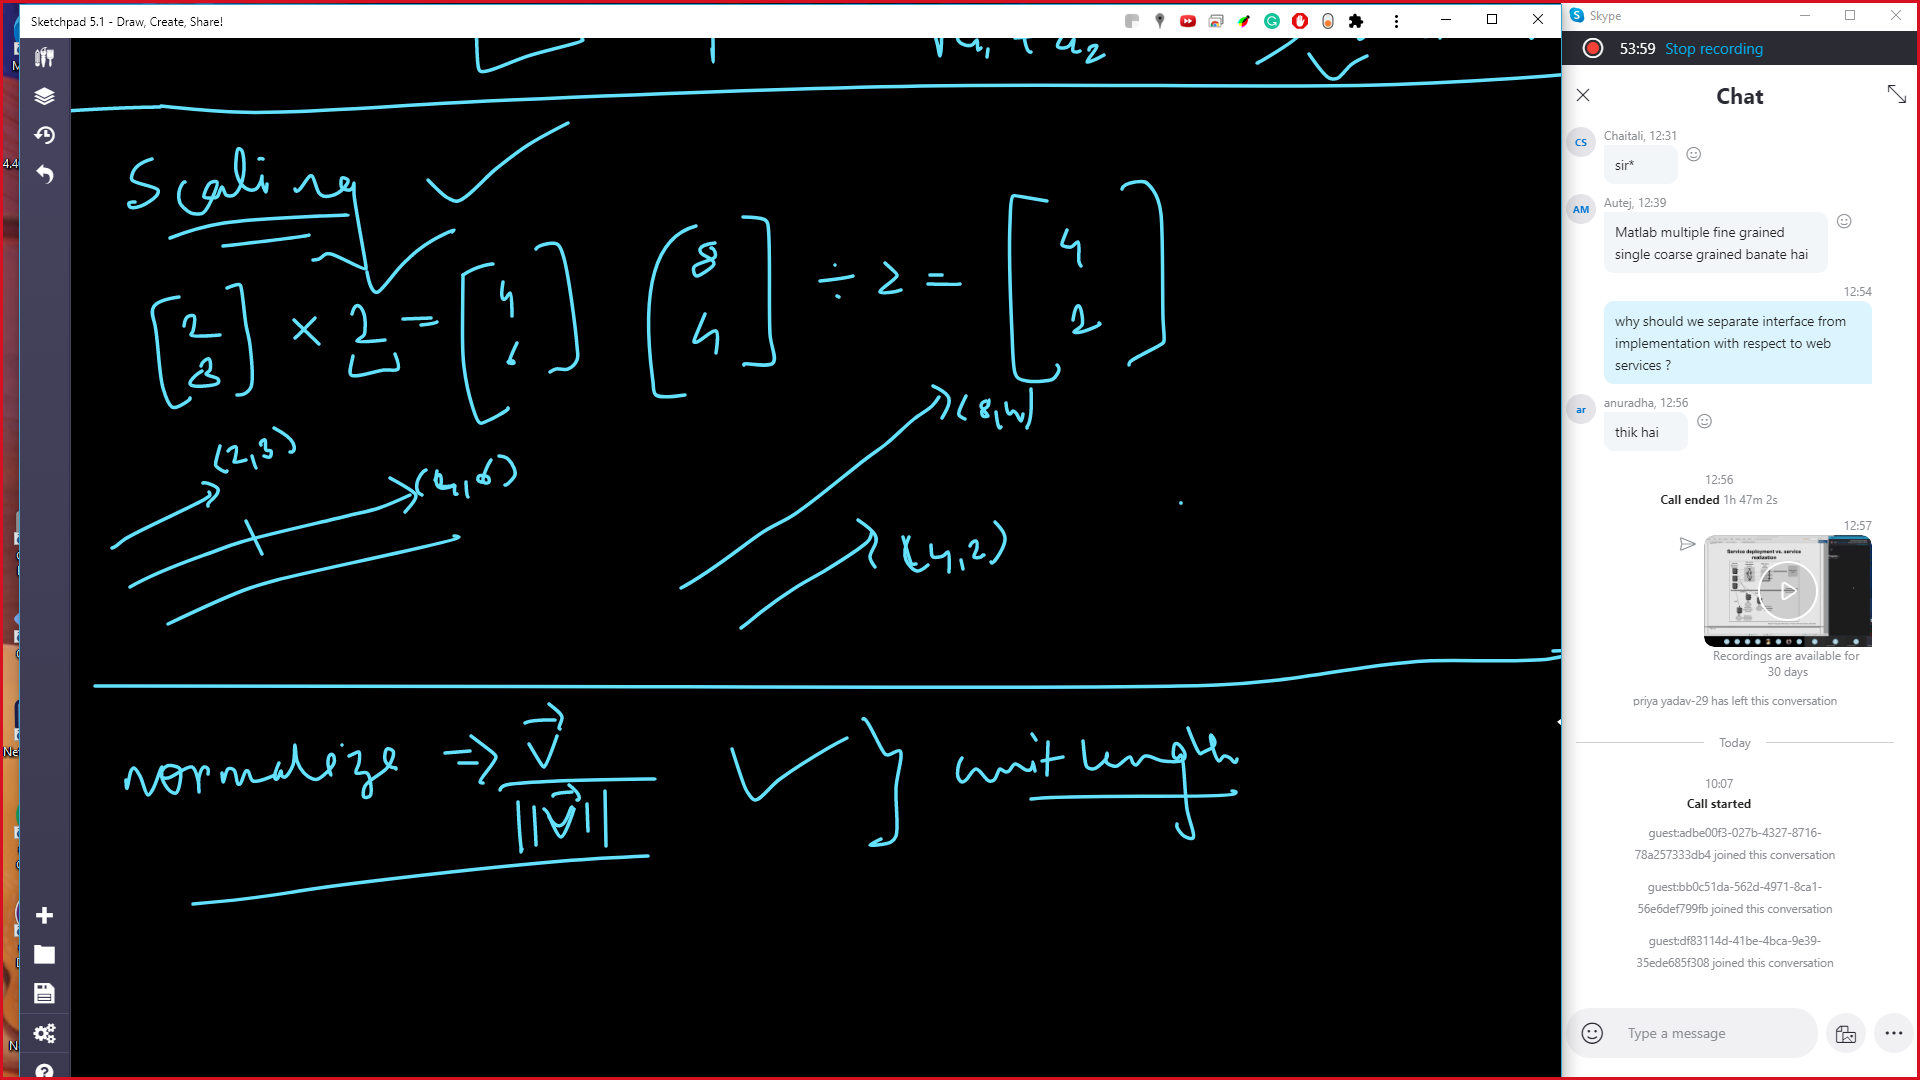 Sketchpad 5.1 - Draw, Create, Share!
√a₁ + a₂
Scaling
[2 3] × 2 = [4 6] [8 4] ÷ 2 = [4 2]
(2,3)
(4,6)
(8,4)
(4,2)
normalize => v / ||v|| } unit length
Skype
53:59 Stop recording
Chat
CS
Chaitali, 12:31
sir*
AM
Autej, 12:39
Matlab multiple fine grained
single coarse grained banate hai
12:54
why should we separate interface from
implementation with respect to web
services ?
ar
anuradha, 12:56
thik hai
12:56
Call ended 1h 47m 2s
12:57
Service deployment vs. service
realization
Recordings are available for
30 days
priya yadav-29 has left this conversation
Today
10:07
Call started
guest:adbe00f3-027b-4327-8716-
78a257333db4 joined this conversation
guest:bb0c51da-562d-4971-8ca1-
56e6def799fb joined this conversation
guest:df83114d-41be-4bca-9e39-
35ede685f308 joined this conversation
Type a message